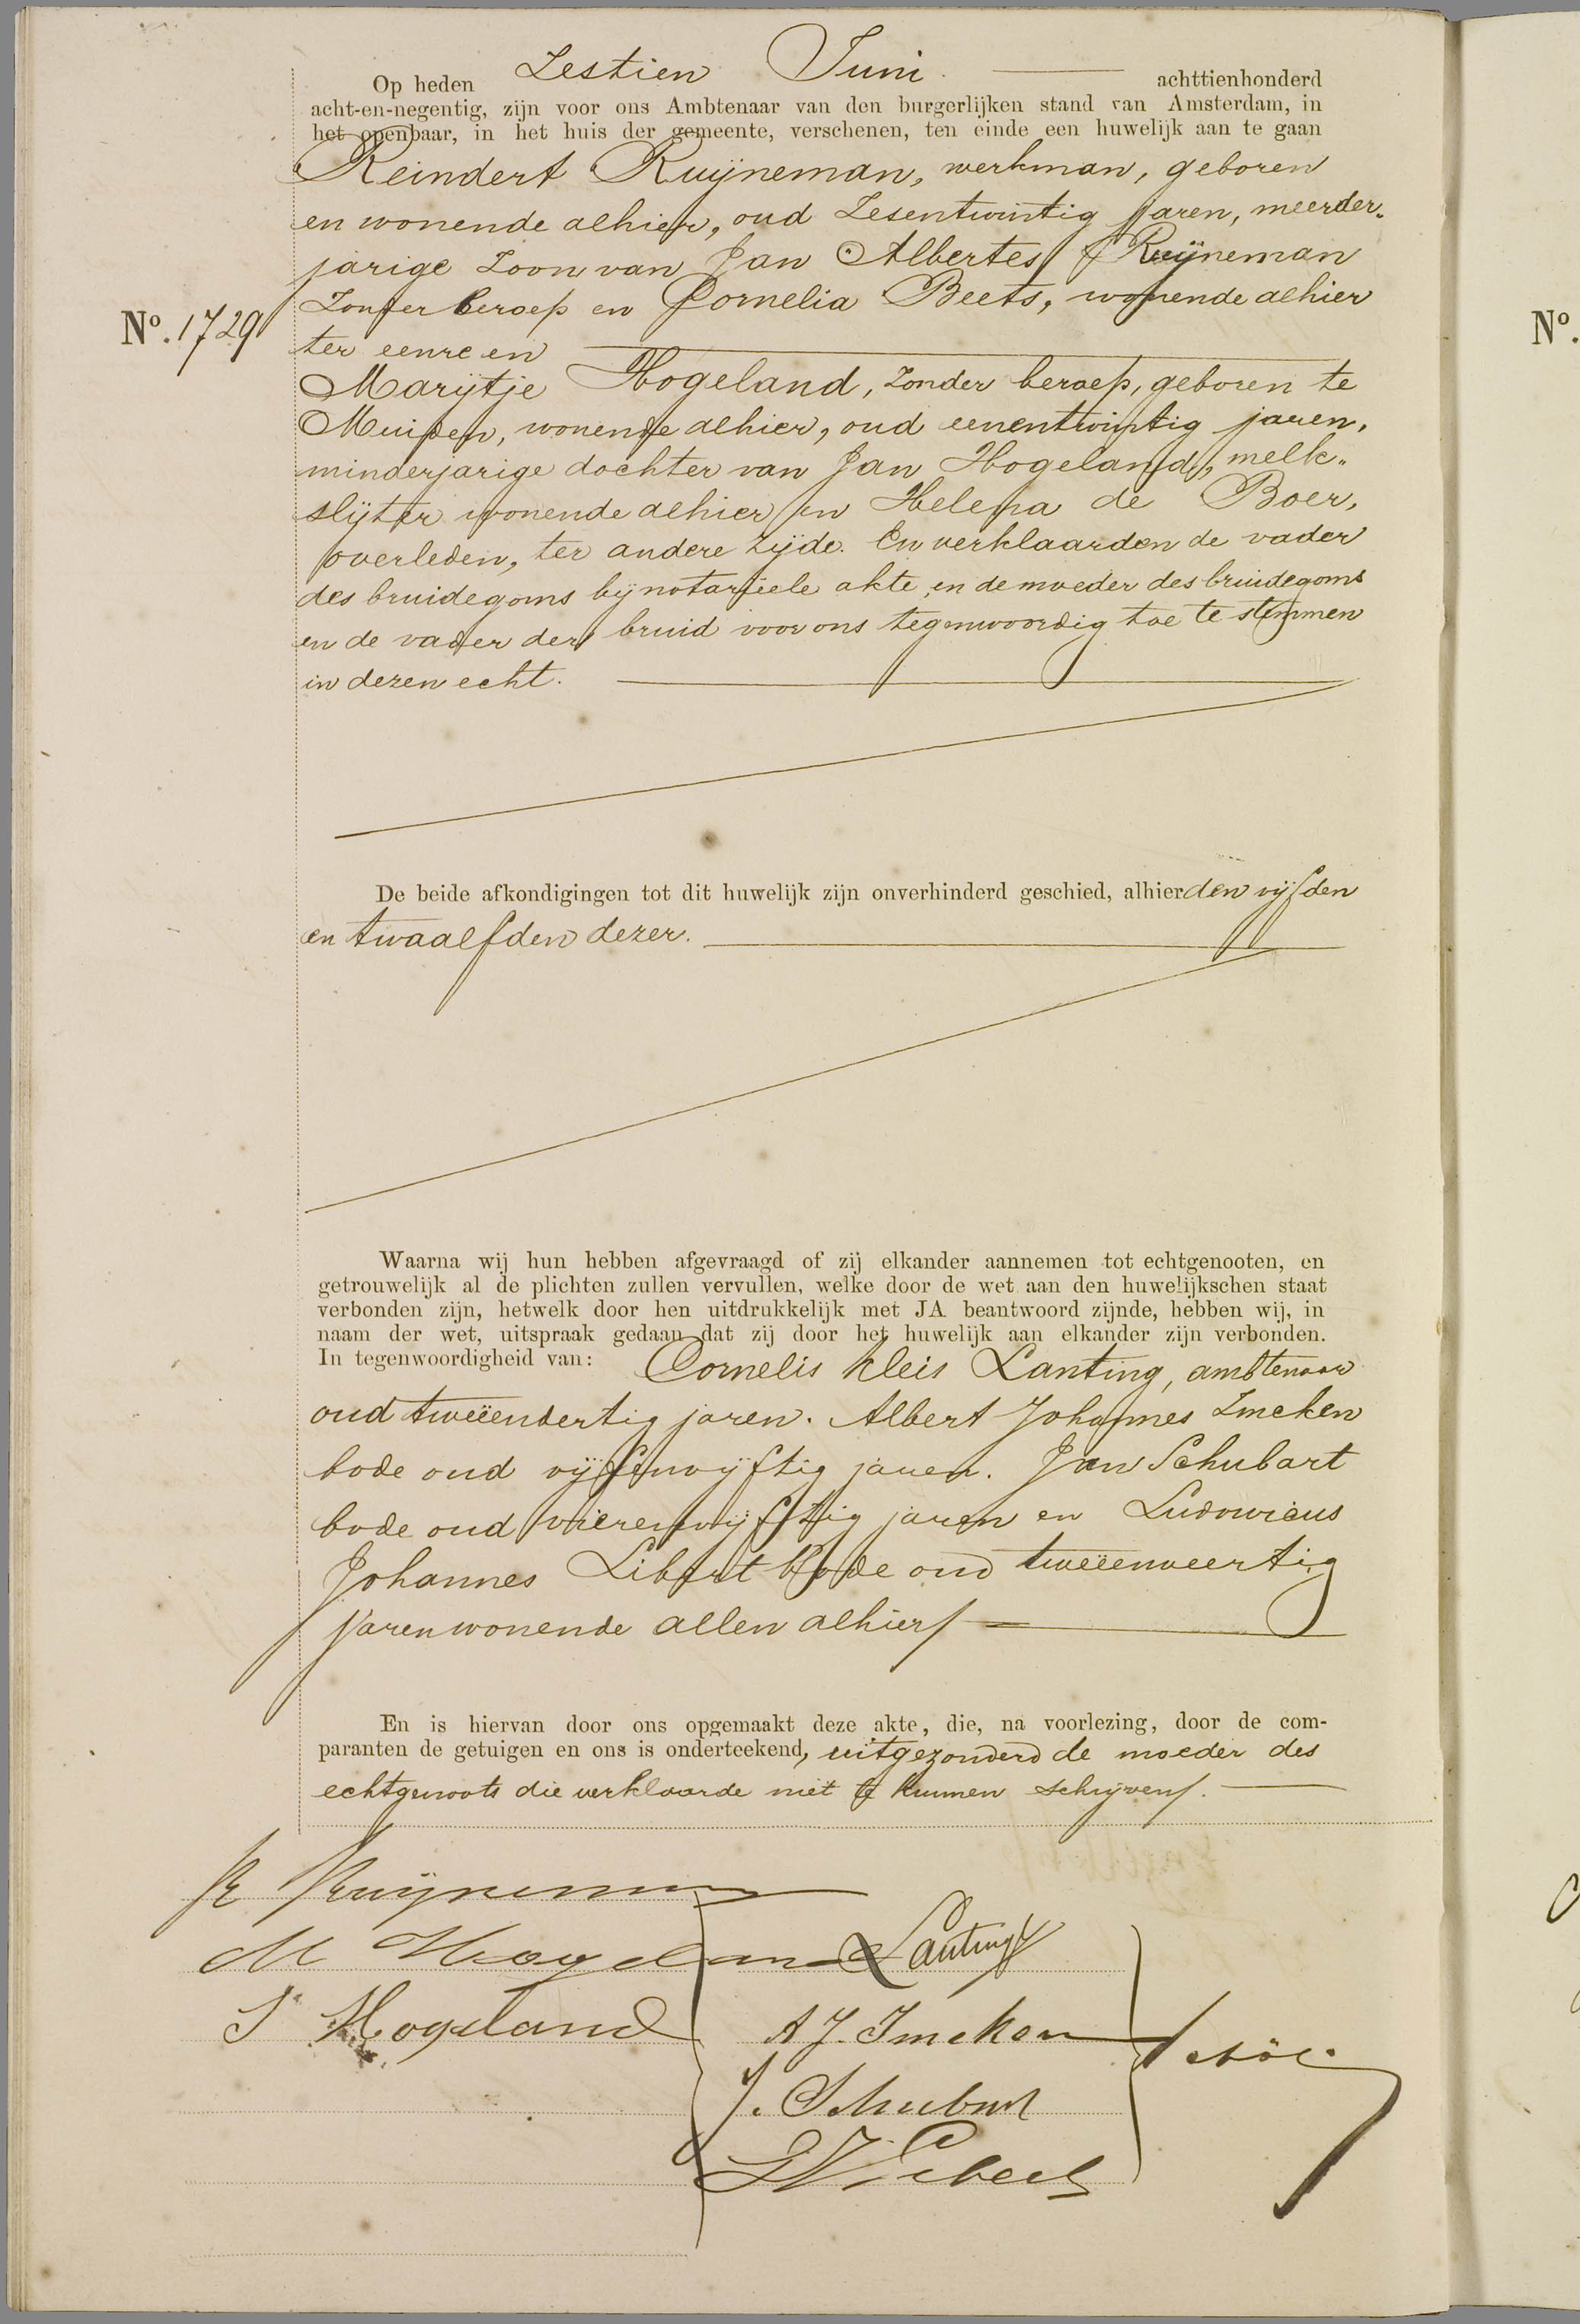 Op heden Zestien Juni achttienhonderd
acht-en-negentig, zijn voor ons Ambtenaar van den burgerlijken stand van Amsterdam, in
het openbaar, in het huis der gemeente, verschenen, ten einde een huwelijk aan te gaan
Reindert Ruijneman, werkman, geboren
en wonende alhier, oud Zesentwintig jaren, meerder„
jarige Zoon van Jan Albertes Ruijneman
Zonder beroep en Cornelia Beets, wonende alhier
No. 1729
ter eenre en
Marijtje Hogeland, Zonder beroep, geboren te
Muiden, wonende alhier, oud eenentwintig jaren,
minderjarige dochter van Jan Hogeland, melk„
slijter wonende alhier en Helena de Boer,
overleden, ter andere zijde. En verklaarden de vader
des bruidegoms bij notariëele akte, en de moeder des bruidegoms
en de vader der bruid voor ons tegenwoordig toe te stemmen
in dezen echt.
De beide afkondigingen tot dit huwelijk zijn onverhinderd geschied, alhier den vijfden
en twaalfden dezer.
Waarna wij hun hebben afgevraagd of zij elkander aannemen tot echtgenooten, en
getrouwelijk al de plichten zullen vervullen, welke door de wet aan den huwelijkschen staat
verbonden zijn, hetwelk door hen uitdrukkelijk met JA beantwoord zijnde, hebben wij, in
naam der wet, uitspraak gedaan dat zij door het huwelijk aan elkander zijn verbonden.
In tegenwoordigheid van: Cornelis Kleis Lanting, ambtenaar
oud tweeëndertig jaren. Albert Johannes Imeken
bode oud vijfenvijftig jaren. Jan Schubart
bode oud vierenvijftig jaren en Ludovicus
Johannes Libert bode oud tweeënveertig
jaren wonende allen alhier
En is hiervan door ons opgemaakt deze akte, die, na voorlezing, door de com-
paranten de getuigen en ons is onderteekend, uitgezonderd de moeder des
echtgenoots die verklaarde niet te kunnen schrijven.
R Ruijneman
M Hogeland
Lanting
J Hogeland
A J. Imeken
J. Schubart
L J Libert
No.